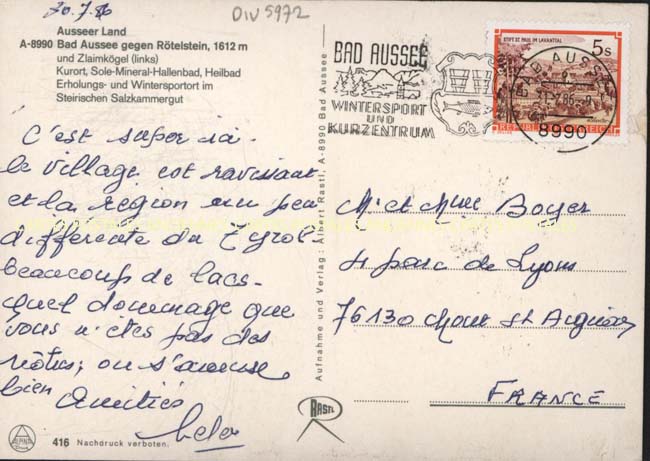 30.7.86
DIV 5972
Ausseer Land
A-8990 Bad Aussee gegen Rötelstein, 1612 m
und Zlaimkögel (links)
Kurort, Sole-Mineral-Hallenbad, Heilbad
Erholungs- und Wintersportort im
Steirischen Salzkammergut
C'est super ici
le village est ravissant
et la région un peu
différente du Tyrol
beaucoup de lacs.
quel dommage que
vous n'êtes pas des
nôtres; on s'amuse
bien Amitiés
416 Nachdruck verboten.
Aufnahme und Verlag: Albert Rastl, A-8990 Bad Aussee
RASTL
BAD AUSSEE
WINTERSPORT
UND
KURZENTRUM
STIFT ST. PAUL IM LAVANTTAL
5s
REPUBLIK ÖSTERREICH
BAD AUSSEE
8990
M. et Mme Boyer
4 parc de Lyons
76130 Mont St Aignan
FRANCE